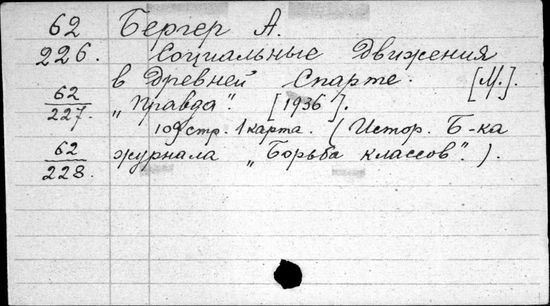 62 Бергер А.
226. Социальные движения
в Древней Спарте. [М.].
62
227. „Правда" [1936].
109 стр. 1 карта. (Истор. Б-ка
62
228. журнала „Борьба классов".).